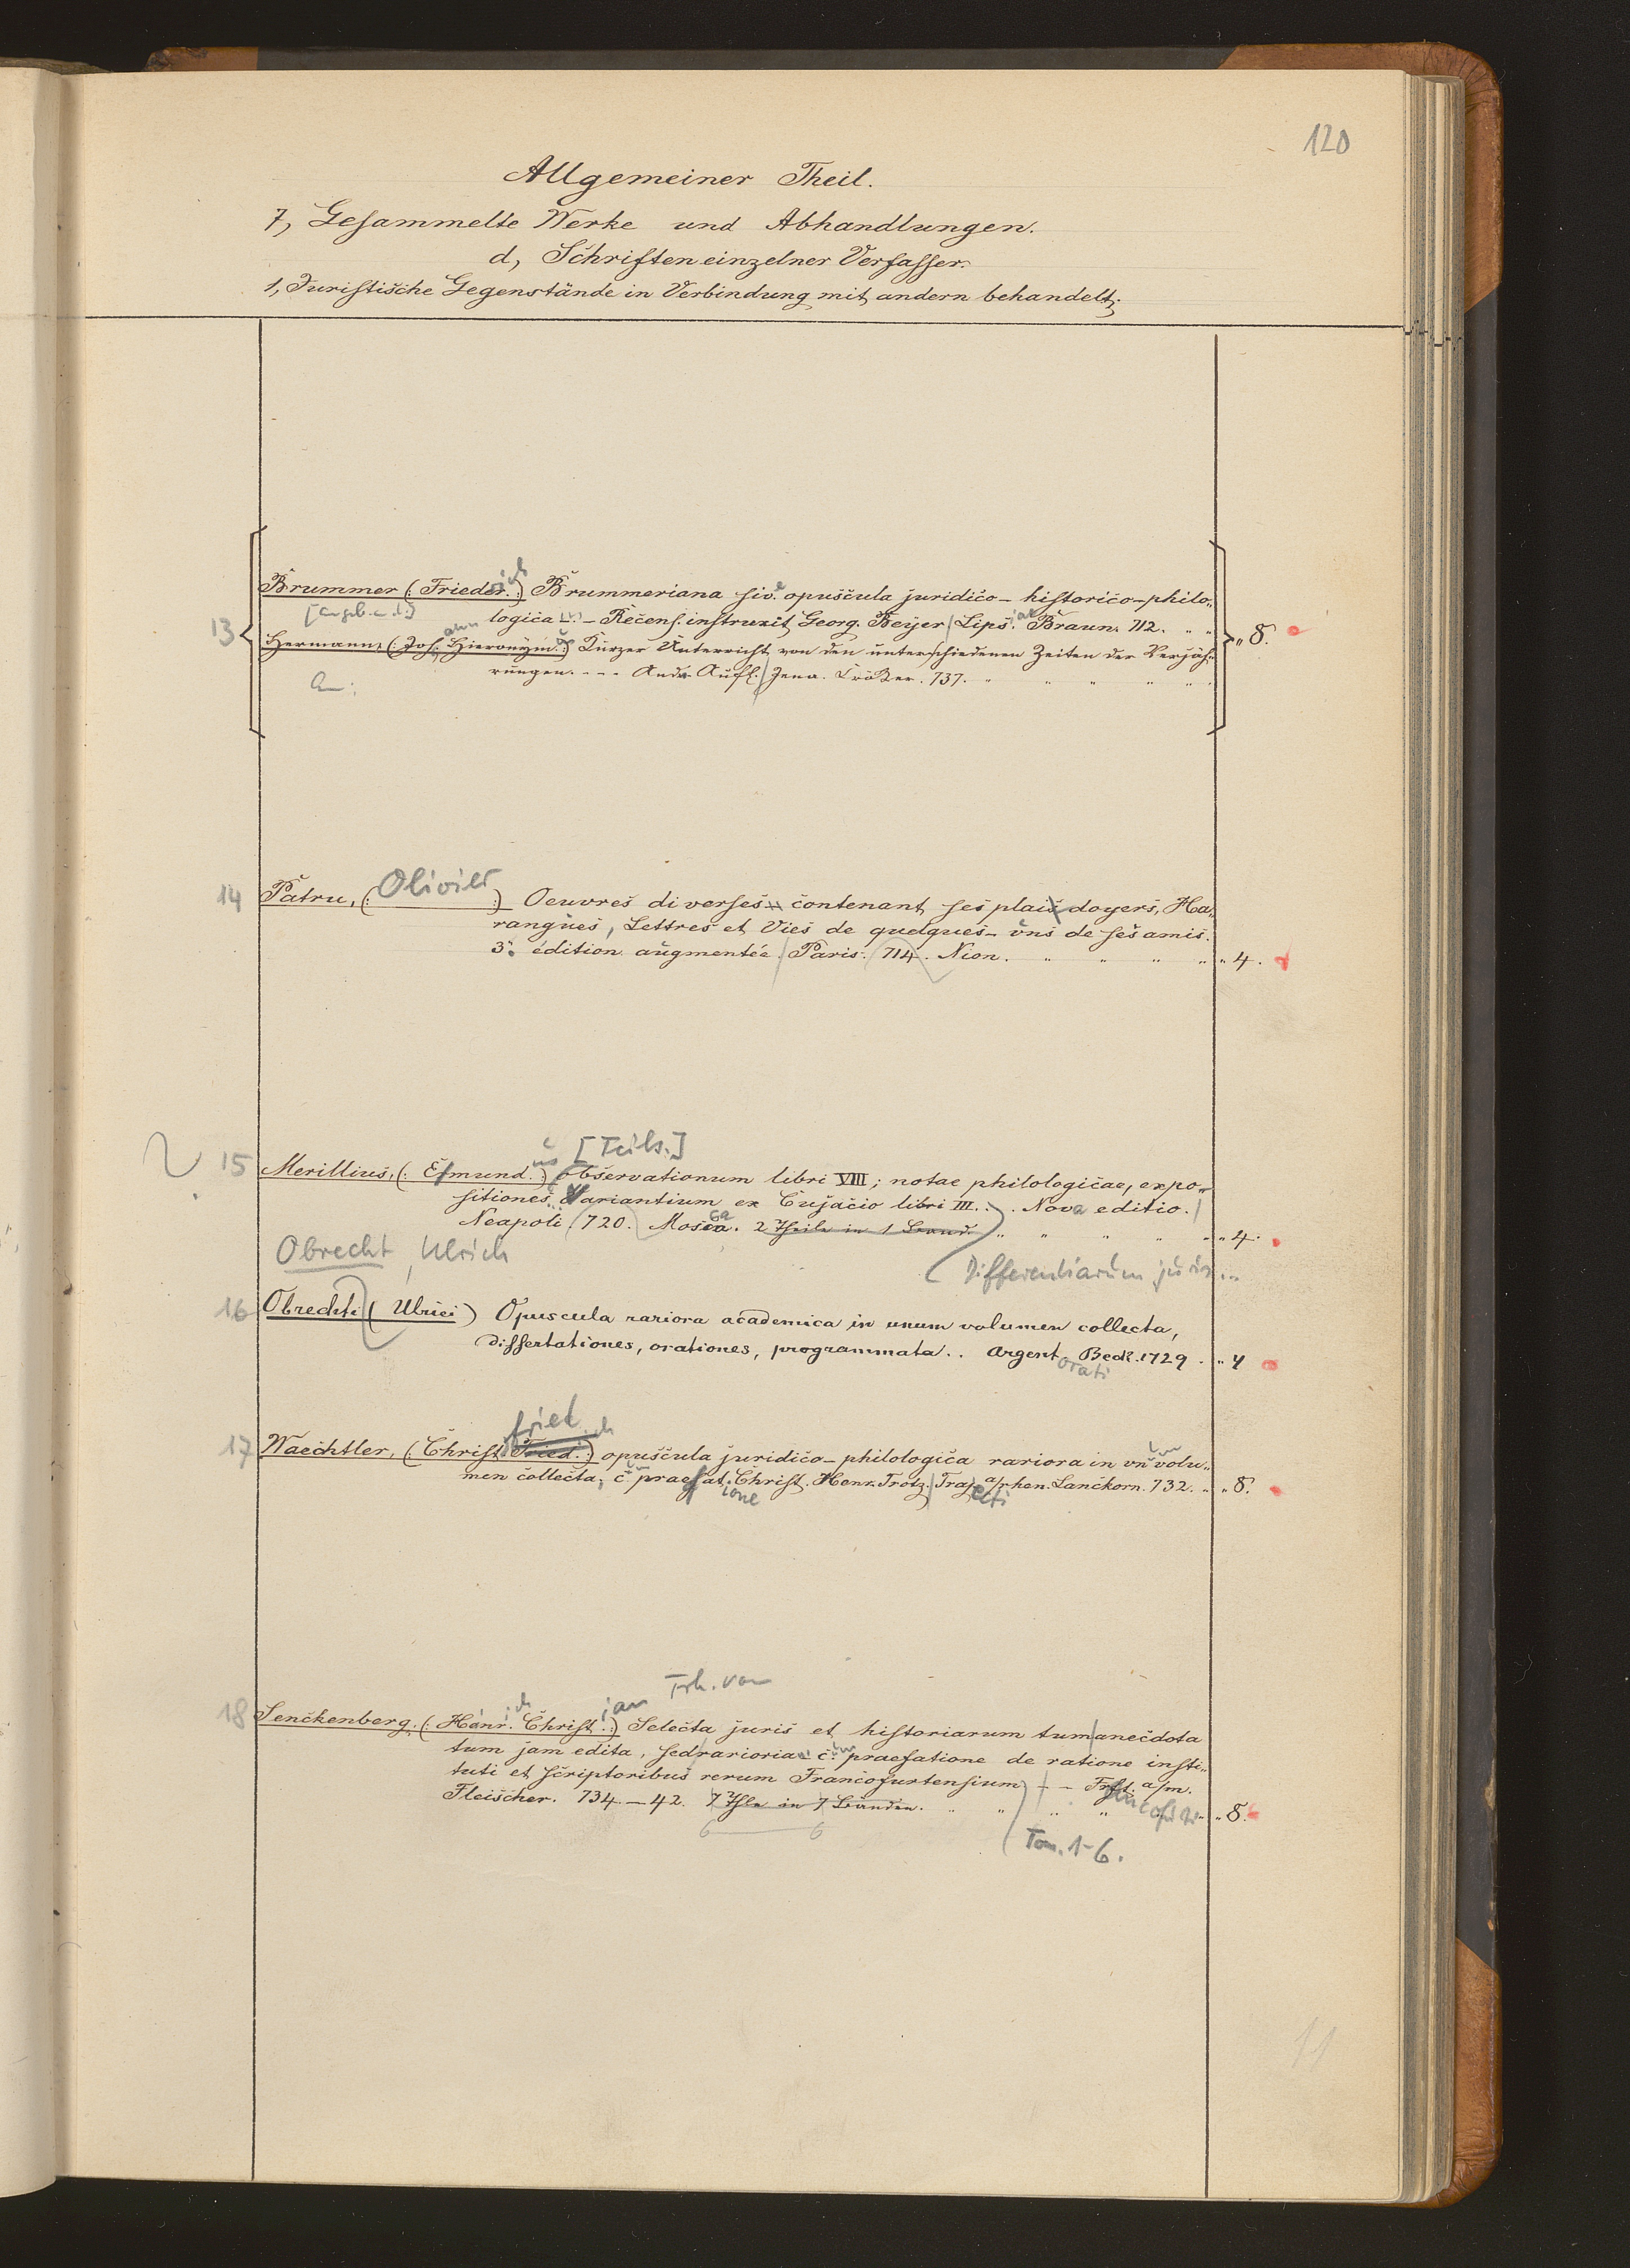 120
Allgemeiner Theil.
7, Gesammelte Werke und Abhandlungen.
d, Schriften einzelner Verfasser.
1, Juristische Gegenstände in Verbindung mit andern behandelt.
13 Brummer (: Frieder. :) Brummeriana sive opuscula juridico- historico-philo„
logica - - Recens. instruxit Georg. Beyer Lips. Braun. 712. „ „
Hermann, (: Joh. Hieronym. :) Kurzer Unterricht von den unterschiedenen Zeiten der Verjäh„ „ 8.
rungen. - - - Andr. Aufl. Jena. Cröker. 737. „ „ „ „ „
14 Patru, (: Olivier :) Oeuvres diverses contenant ses plaidoyers, Ha„
rangues, Lettres et Vies de quelques- uns de ses amis.
3e édition augmentée. Paris. 714. Nion. „ „ „ „ „ 4.
[Teils.]
15 Merillius, (: Esmund. :) us observationum libri VIII; notae philologicae, expo„
sitiones Variantium ex Cujacio libri III. . . Nova editio.
Neapoli. 720. Mosca. 2 Theile in 1 Band. „ „ „ „ „ „ 4.
Obrecht, Ulrich
Differentiarum juris...
16 Obrechti (Ulrici) Opuscula rariora academica in unum volumen collecta,
dissertationes, orationes, programmata. . Argentorati Beck. 1729. „ 4
fried ich
17 Waechtler, (: Christ. Fried. :) opuscula juridico-philologica rariora in un volu„
men collecta; c praefatione Christ. Henr. Trotz. Trajecti a/rhen. Lanckorn. 732. „ „ 8.
Frh. von
18 Senckenberg, (: Henr. ich Christ. ian :) Selecta juris et historiarum tum anecdota
tum jam edita, sed rarioria c. praefatione de ratione insti„
tuti et scriptoribus rerum Francofurtensium - - Frft. a/m.
Fleischer. 734.-42. 7 Thle in 7 Bänden. „ „ „ „ „ 8.
6 6
Tom. 1-6.